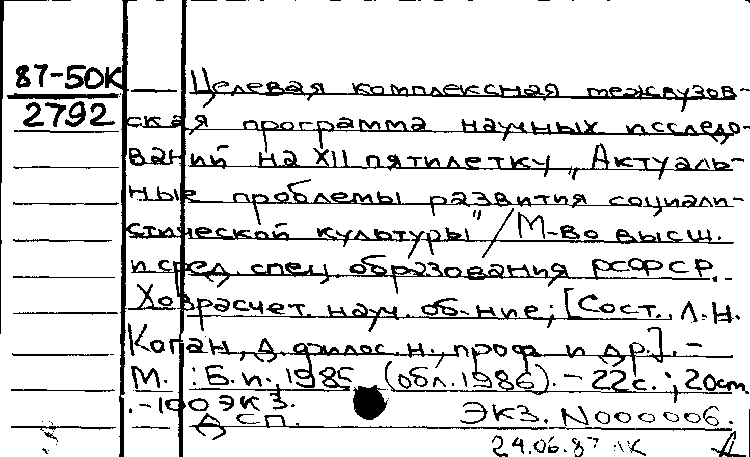 87-50К
2792
Целевая комплексная межвузов-
ская программа научных исследо-
ваний на XII пятилетку „Актуаль-
ные проблемы развития социали-
стической культуры" / М-во высш.
и сред. спец. образования РСФСР.
Хозрасчет. науч. об-ние; [Сост. Л.Н.
Коган, д. филос. н., проф. и др.]. -
М. : Б. и., 1985 (обл. 1986). - 22 с. ; 20 см
. - 100 экз.
ДСП. Экз. N000006.
24.06.87